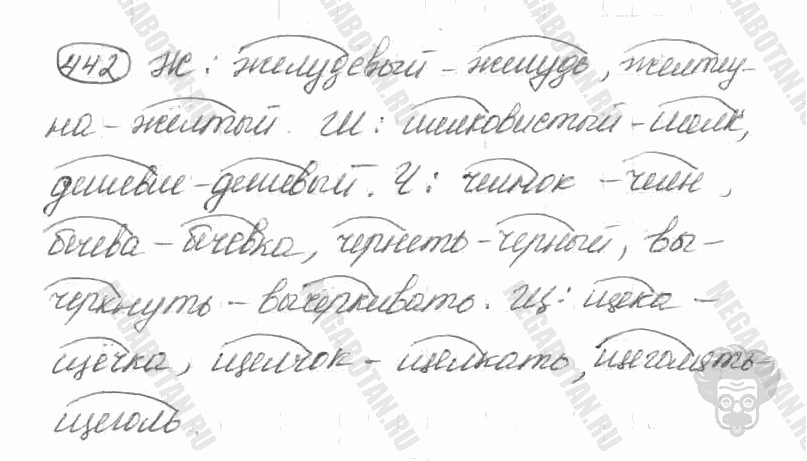 442 Ж: желудевый - желудь, желтиз-
на - жёлтый. Ш: шелковистый - шелк,
дешевле - дешевый. Ч: челнок - челн,
бечева - бечевка, чернеть - черный, вы-
черкнуть - вычеркивать. Щ: щека -
щёчка, щелчок - щелкать, щеголять -
щеголь.
MEGABOTAN.RU